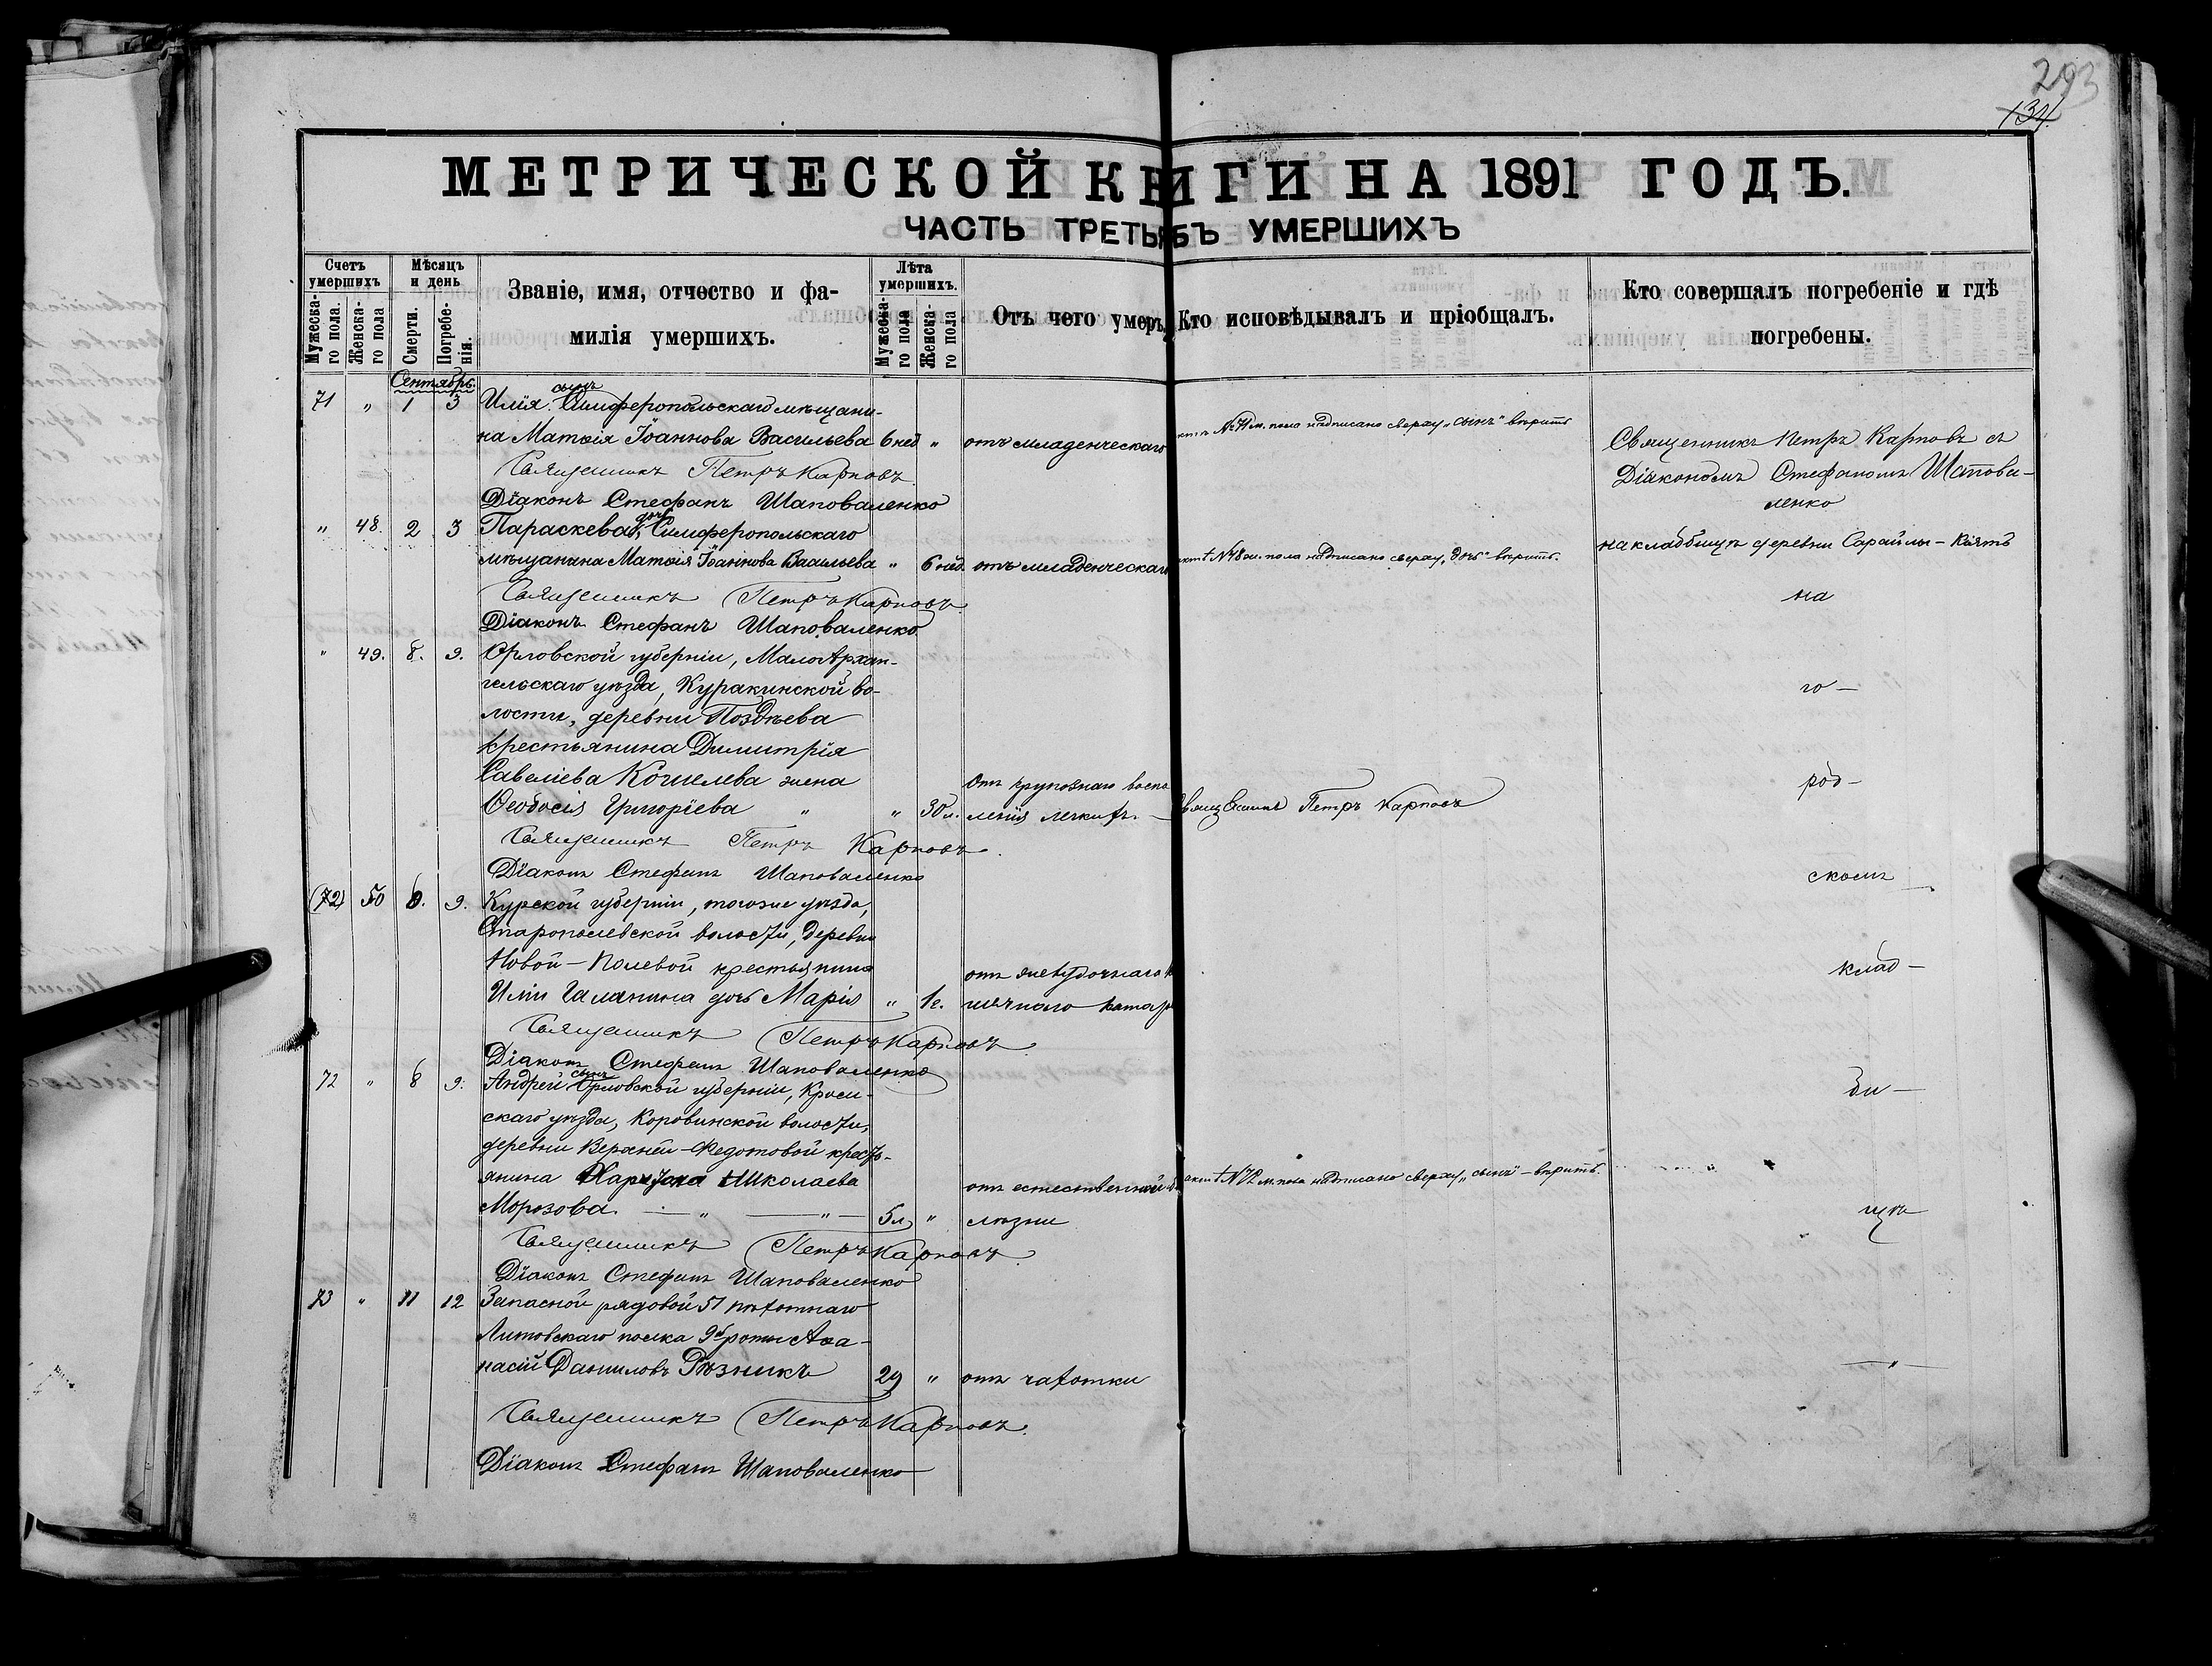 293
134.
МЕТРИЧЕСКОЙ КНИГИ НА 1891 ГОДЪ.
ЧАСТЬ ТРЕТЬЯ УМЕРШИХЪ
Счетъ умершихъ
Мужеска-го пола.
Женска-го пола
Мѣсяцъ и день
Смерти.
Погребе-нія.
Званіе, имя, отчество и фа-
милія умершихъ.
Лѣта умершихъ.
Мужеска-го пола
Женска-го пола
Отъ чего умеръ.
Кто исповѣдывалъ и пріобщалъ.
Кто совершалъ погребеніе и гдѣ
погребены.
Сентябрь
71 " 1 3 Илія, сынъ Симферопольскаго мѣщани-
на Матѳія Іоаннова Васильева 6 нед " отъ младенческаго
№ 71 м. пола надписано сверху „сынъ" вѣрить
Священникъ Петръ Карповъ
Діаконъ Стефанъ Шаповаленко
Священникъ Петръ Карповъ съ
Діакономъ Стефаномъ Шапова-
ленко
" 48. 2 3 Параскева, дочь Симферопольскаго
мѣщанина Матѳія Іоаннова Васильева " 6 нед. отъ младенческаго
№ 48 ж. пола надписано сверху „дочь" вѣрить.
на кладбищѣ деревни Сарайлы-Кіятъ
Священникъ Петръ Карповъ
Діаконъ Стефанъ Шаповаленко
на
" 49. 8. 9. Орловской губерніи, Малоархан-
гельскаго уѣзда, Куракинской во-
лости, деревни Позднева
крестьянина Димитрія
Савеліева Кошелева жена
Ѳеодосія Григоріева " " 30 л.
отъ крупознаго воспа
ленія легкихъ.
Священникъ Петръ Карповъ
го-
род-
Священникъ Петръ Карповъ.
Діаконъ Стефанъ Шаповаленко
скомъ
(72) 50 8. 9. Курской губерніи, тогоже уѣзда,
Старополевской волости, деревни
Новой-Полевой крестьянина
Иліи Галанина дочь Марія " 1 г.
отъ желудочнаго к
шечнаго катар
клад-
Священникъ Петръ Карповъ
Діаконъ Стефанъ Шаповаленко
72 " 8 9. Андрей сынъ Орловской губерніи, Кром-
скаго уѣзда, Коровинской волости,
деревни Верхней-Ѳедотовой кресть-
янина Харитона Николаева
Морозова. " " 5 л. "
отъ естественной б
лѣзни
акт № 72 м. пола надписано сверху „сынъ" - вѣрить.
би-
щѣ
Священникъ Петръ Карповъ
Діаконъ Стефанъ Шаповаленко
73 " 11 12 Запасной рядовой 51 пѣхотнаго
Литовскаго полка 9й роты Аѳа-
насій Даниловъ Рѣзникъ 29 " отъ чахотки
"
Священникъ Петръ Карповъ.
Діаконъ Стефанъ Шаповаленко